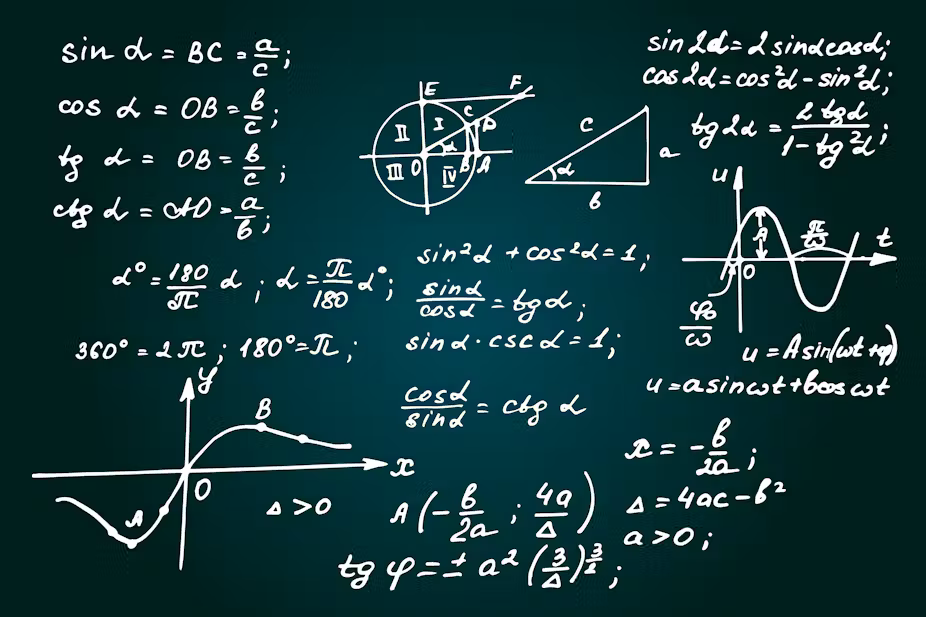 sin α = BC = a/c;
cos α = OB = b/c;
tg α = OB = b/c;
ctg α = AD = a/b;
E F
II I C D
α
III O IV B A
c a
α
b
sin 2α = 2 sinα cosα;
cos 2α = cos²α - sin²α;
tg 2α = 2 tgα / 1 - tg²α;
u
A π/ω t
O
φ₀/ω
u = A sin(ωt + φ)
u = a sin ωt + b cos ωt
α° = 180/π α ; α = π/180 α°;
360° = 2π ; 180° = π ;
sin²α + cos²α = 1;
sinα/cosα = tgα;
sinα · cscα = 1;
cosα/sinα = ctg α
y
B
x
O
A
Δ > 0
x = -b/2a ;
A(-b/2a ; 4a/Δ) Δ = 4ac - b²
a > 0 ;
tg φ = ± a² (3/Δ)^3/2 ;